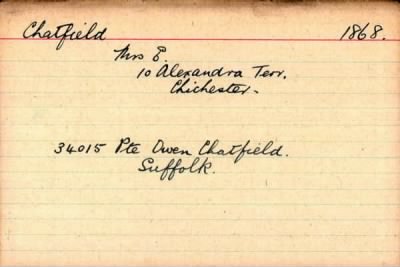 Chatfield 1868.
Mrs E.
10 Alexandra Terr.
Chichester.
34015 Pte Owen Chatfield.
Suffolk.